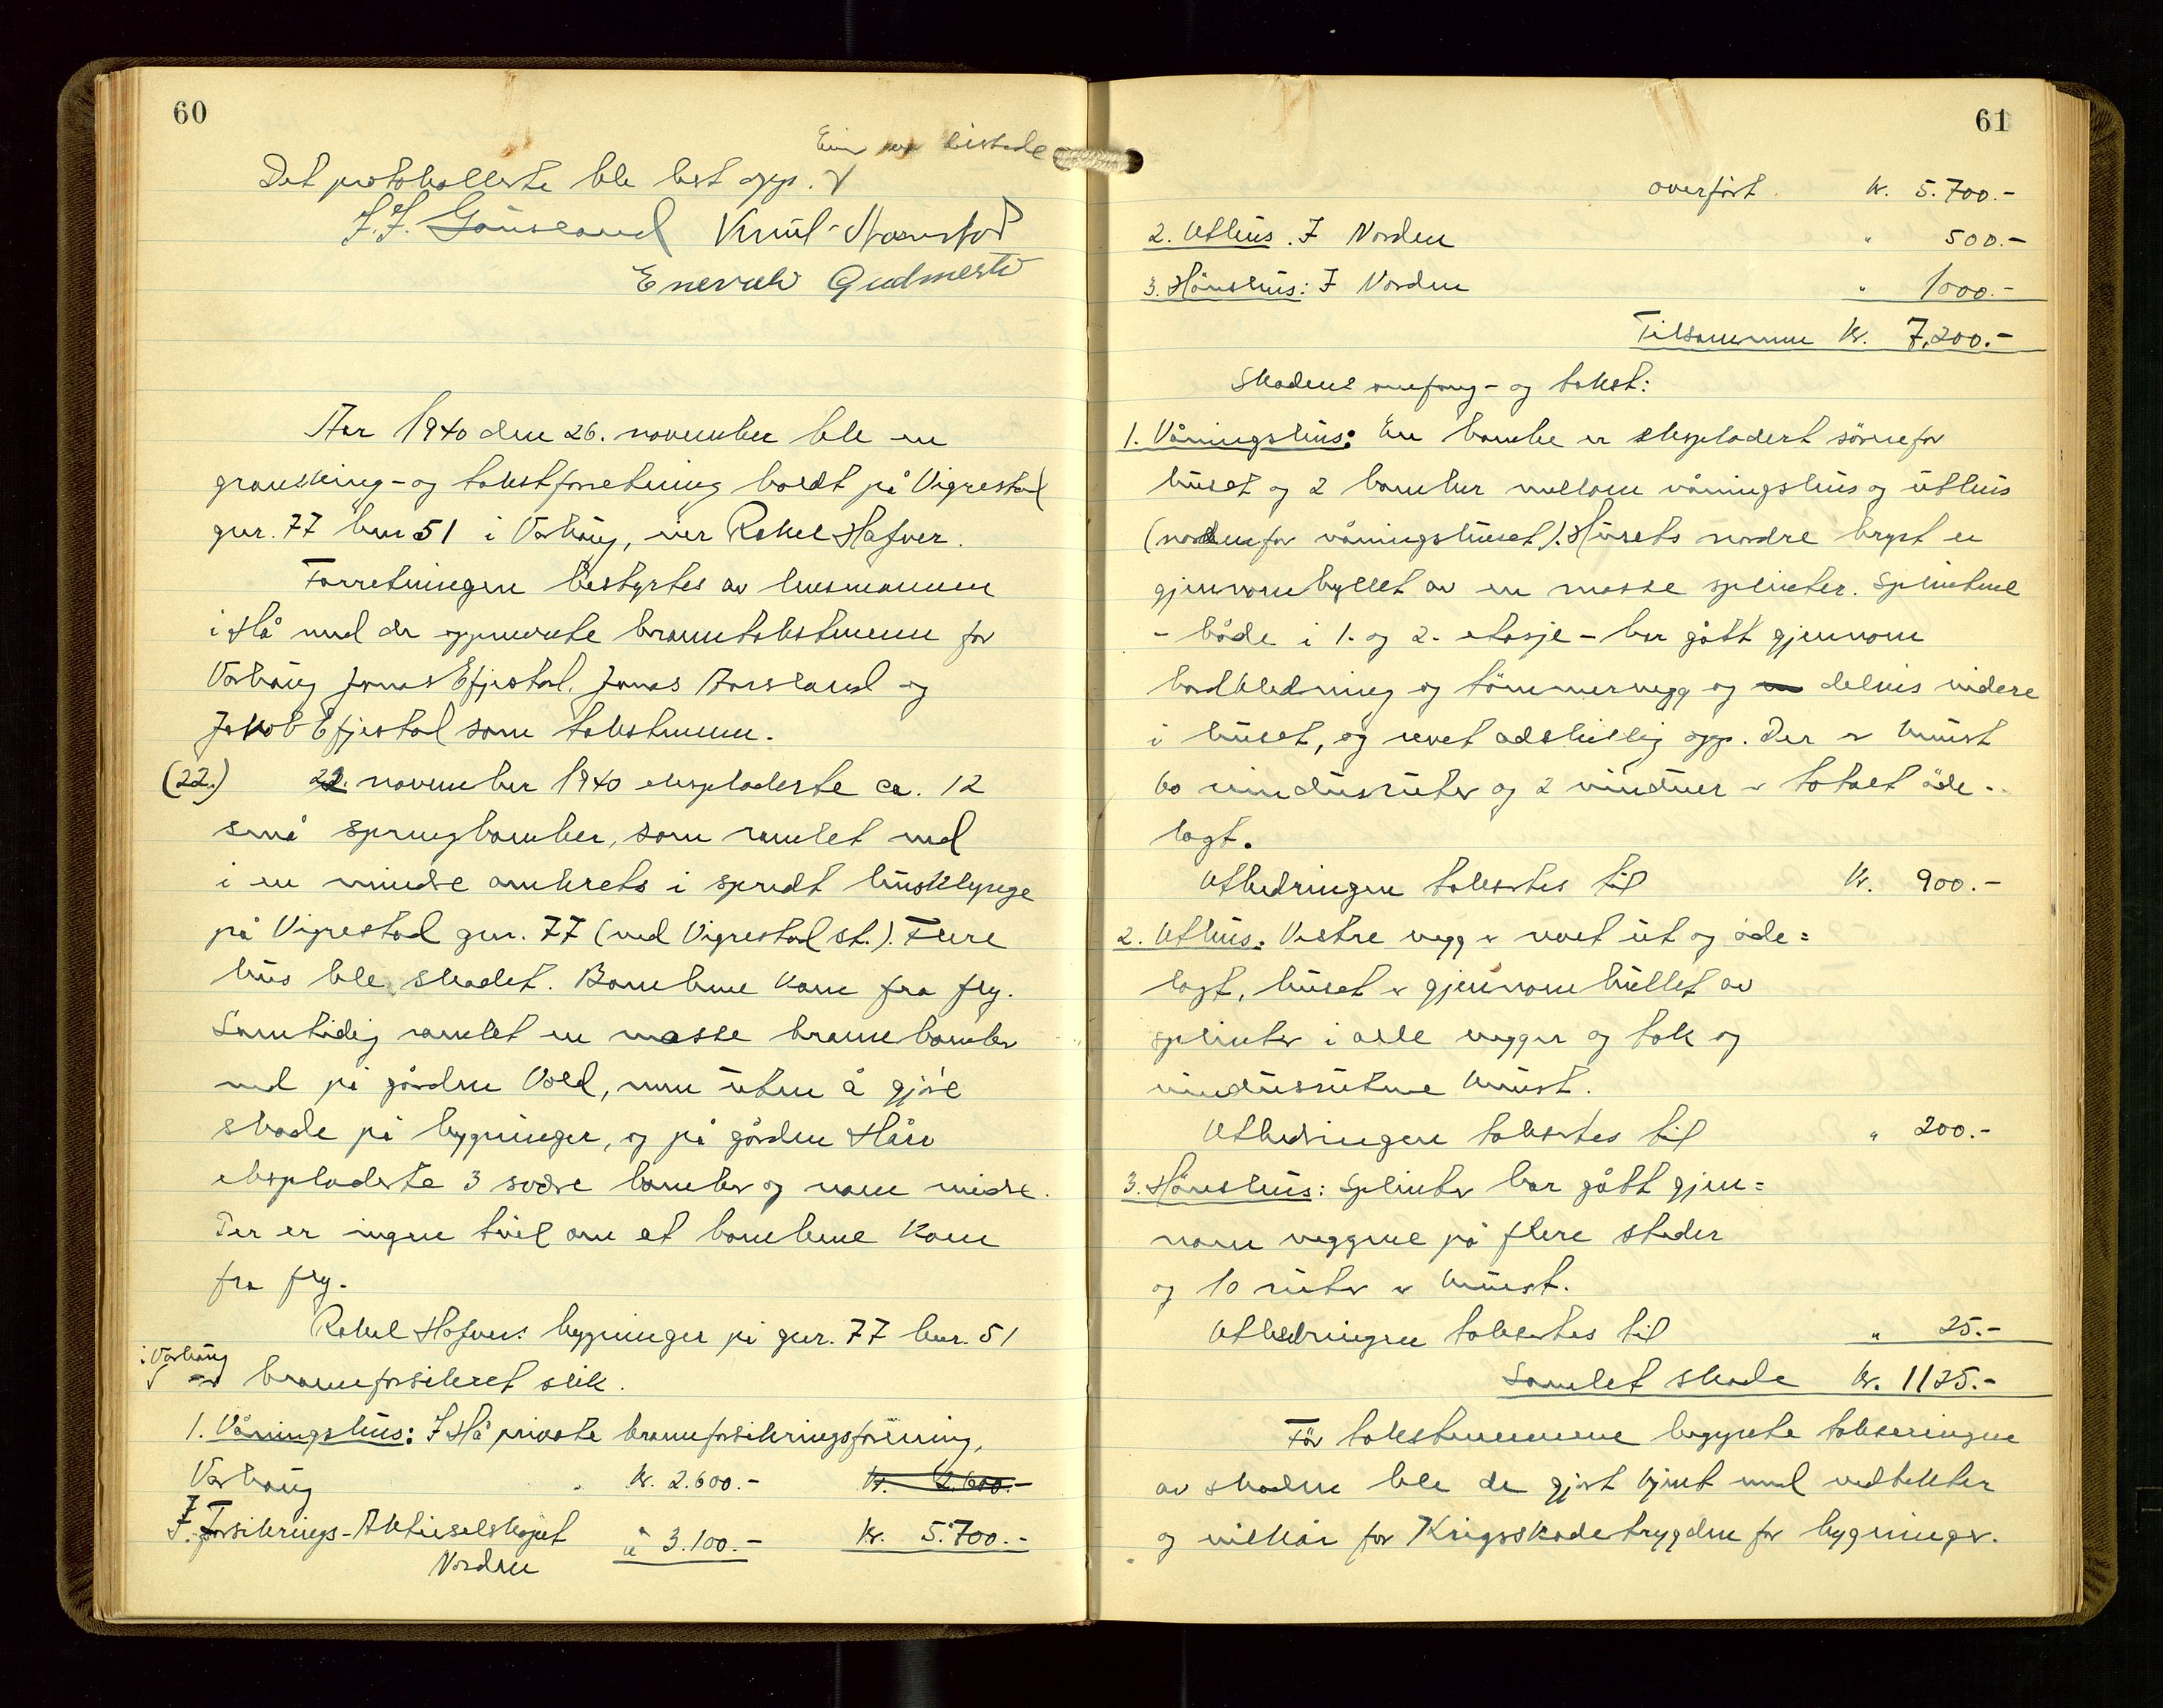 60
Det protokollerte ble lest opp.
Enevald Gudmestad
År 1940 den 26. november ble en
granskning- og takstforretning holdt på Vigrestad
gnr. 77 bnr 51 i Varhaug, eier Rakel Hafver.
Forretningen bestyrtes av lensmannen
i Hå med de oppnevnte branntakstmenn for
Varhaug Jonas Efjestad, Jonas Aarsland og
Jakob Efjestad som takstmenn.
(22.) 22. november 1940 eksploderte ca. 12
små sprengbomber, som ramlet ned
i en mindre omkrets i spredt husklynge
på Vigrestad gnr. 77 (ved Vigrestad st.). Flere
hus ble skadet. Bombene kom fra fly.
Samtidig ramlet en masse brannbomber
ned på gården Vold, men uten å gjøre
skade på bygninger, og på gården Hårr
eksploderte 3 svære bomber og noen mindre.
Der er ingen tvil om at bombene kom
fra fly.
Rakel Hafvers bygninger på gnr. 77 bnr. 51
i Varhaug
er brannforsikret slik.
1. Våningshus: I Hå private brannforsikringsforening,
Varhaug kr. 2.600.- kr. 2.600.-
I Forsikrings-Aktieselskapet " 3.100.- kr. 5.700.-
Norden
61
overført kr. 5.700.-
2. Uthus. I Norden " 500.-
3. Hønshus: I Norden " 1000.-
Tilsammen kr. 7,200.-
Skadens omfang- og takst:
1. Våningshus: En bombe er eksplodert sønnefor
huset og 2 bomber mellom våningshus og uthus
(nordenfor våningshuset). Husets nordre bryst er
gjennomhullet av en masse splinter. Splintene
- både i 1. og 2. etasje - har gått gjennom
bordkledning og tømmervegg og delvis videre
i huset, og revet adskillig opp. Der er knust
60 vindusruter og 2 vinduer er totalt øde-
lagt.
Utbedringen taksertes til kr. 900.-
2. Uthus: Vestre vegg er revet ut og øde=
lagt, huset er gjennomhullet av
splinter i alle vegger og tak og
vindusrutene knust.
Utbedringen taksertes til " 200.-
3. Hønshus: Splinter har gått gjen=
nom veggene på flere steder
og 10 ruter er knust.
Utbedringen taksertes til " 25.-
Samlet skade kr. 1125.-
Før takstmennene begynte takseringen
av skaden ble de gjort kjent med vedtekter
og vilkår for Krigsskadetrygden for bygninger.